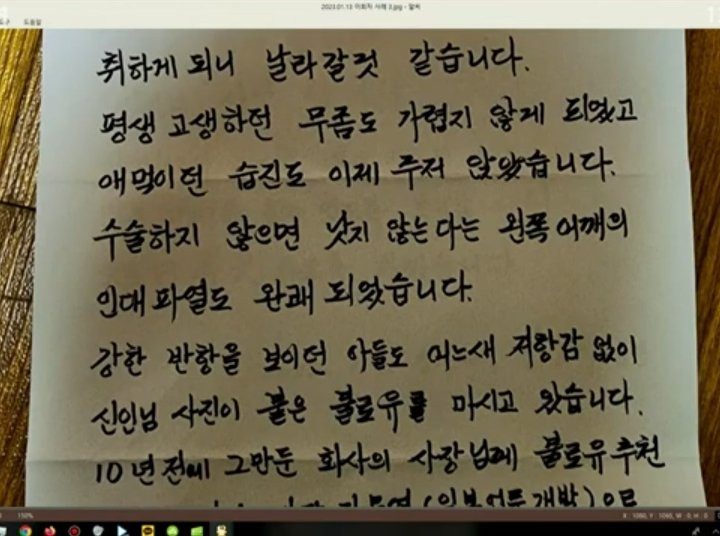 2023.01.13 이회자 사례 3.jpg - 알씨
도구 도움말
취하게 되니 날라갈것 같습니다.
평생 고생하던 무좀도 가렵지 않게 되었고
애먹이던 습진도 이제 주저 앉았습니다.
수술하지 않으면 낫지 않는다는 왼쪽어깨의
인대파열도 완쾌 되었습니다.
강한 반항을 보이던 아들도 어느새 저항감 없이
신인님 사진이 붙은 불로유를 마시고 있습니다.
10년전에 그만둔 회사의 사장님께 불로유추천
150%
X : 1080, Y : 1090, W : 0, H : 0